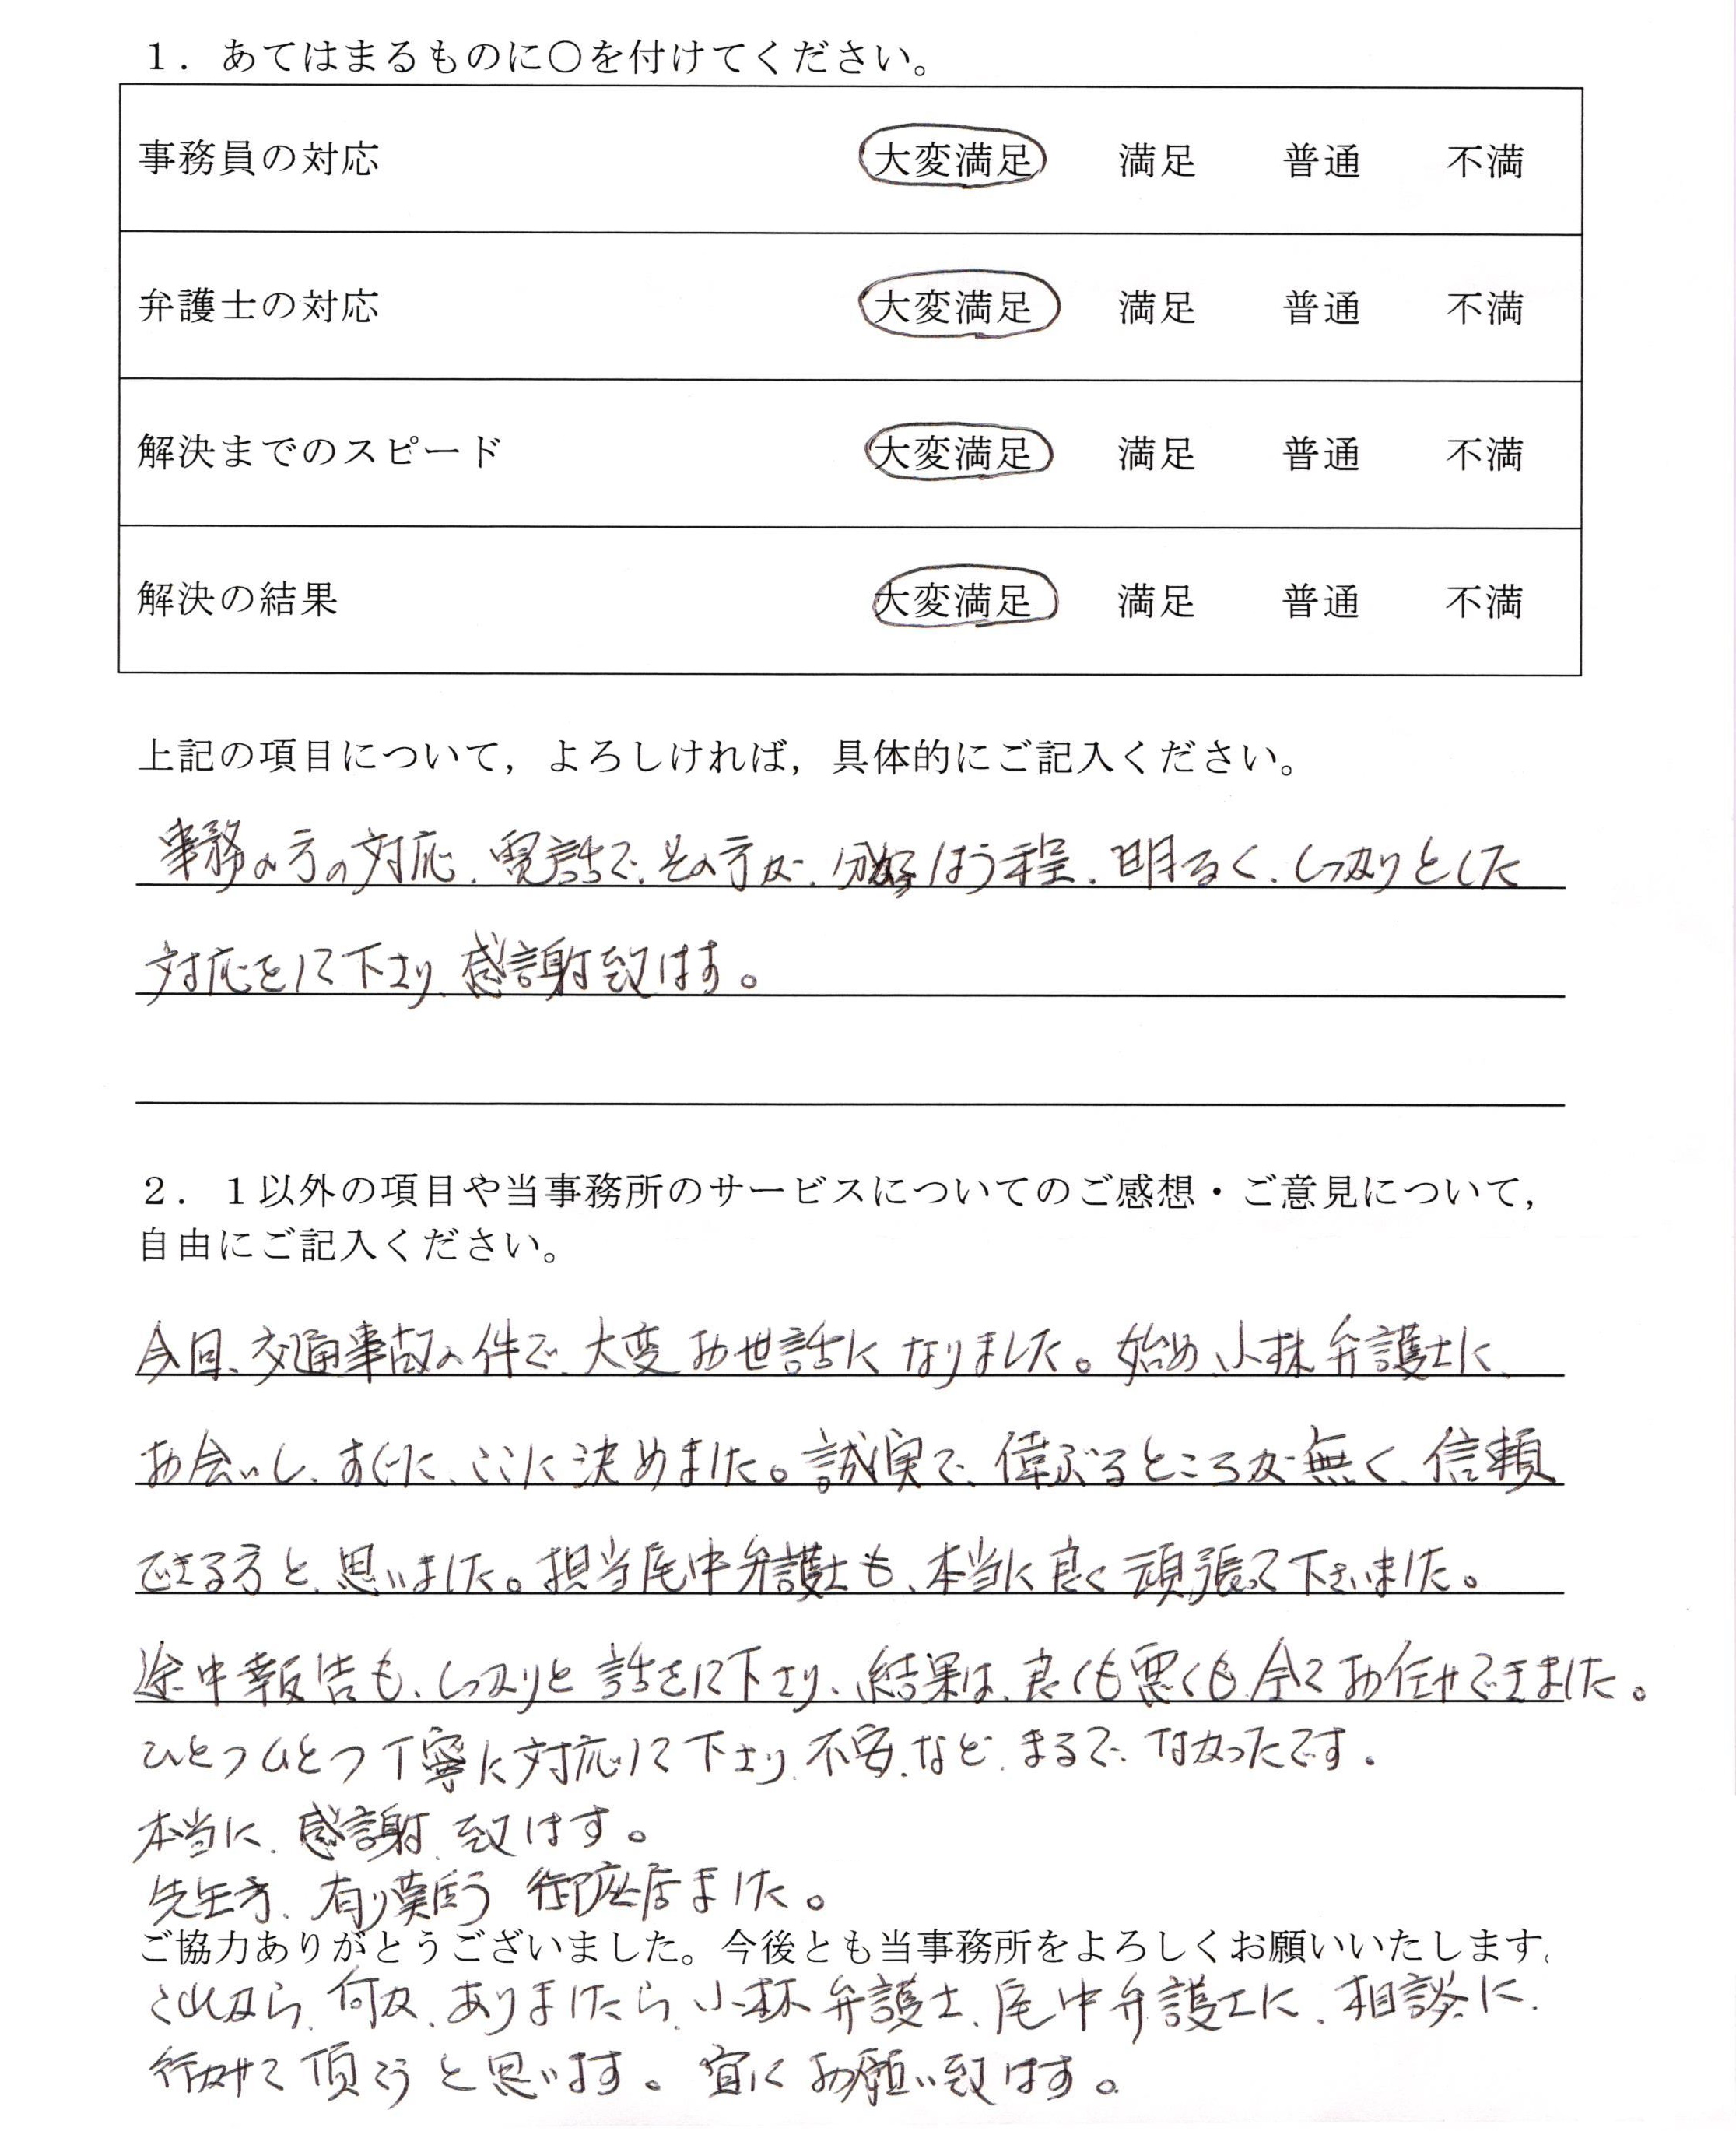 １．あてはまるものに○を付けてください。
事務員の対応 大変満足 満足 普通 不満
弁護士の対応 大変満足 満足 普通 不満
解決までのスピード 大変満足 満足 普通 不満
解決の結果 大変満足 満足 普通 不満
上記の項目について，よろしければ，具体的にご記入ください。
事務の方の対応、電話で、その方が、分かるほう程、明るく、しっかりとした
対応をして下さり、感謝致します。
２．１以外の項目や当事務所のサービスについてのご感想・ご意見について，
自由にご記入ください。
今回、交通事故の件で、大変お世話になりました。始め、小林弁護士に、
お会いし、すぐに、ここに決めました。誠実で、偉ぶるところが無く、信頼
できる方と、思いました。担当尾中弁護士も、本当に良く頑張って下さいました。
途中報告も、しっかりと話をして下さり、結果は、良くも悪くも、全てお任せできました。
ひとつひとつ丁寧に対応して下さり、不安、など、まるで、なかったです。
本当に、感謝、致します。
先生方、有り難う御座居ました。
ご協力ありがとうございました。今後とも当事務所をよろしくお願いいたします。
これから、何か、ありましたら、小林弁護士、尾中弁護士に、相談に、
行かせて頂こうと思います。宜しくお願い致します。